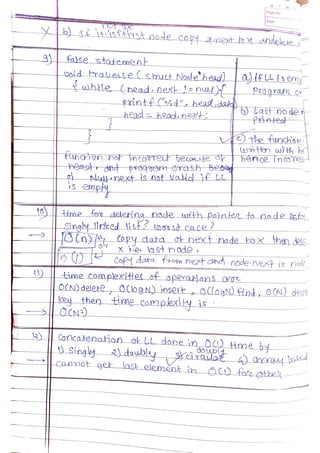 X b) if it is first node copy x.next to x, undelete
9) False statement
void traverse (struct Node *head)
{ while (head.next != null) {
printf ("%d", head.data)
head = head.next;
}
}
a) If LL is emp
Program cr
b) Last node
printed
c) The function
written with h
hence incorrec
function not incorrect because of
head. and program crash
of Null.next is not valid if LL
is empty
10) time for deleting node with pointer to node
singly linked list? worst case?
→ O(n) copy data of next node to x then dele
or x i.e. last node.
O(1) copy data from next and node.next is
11) time complexities of operations are
O(N) delete, O(logN) insert, O(logN) find, O(N) decr
key then time complexity is
→ O(N²)
12) concatenation of LL done in O(1) time by
1) singly 2) doubly 3) circular doubly 4) array based
→ cannot get last element in O(1) for other